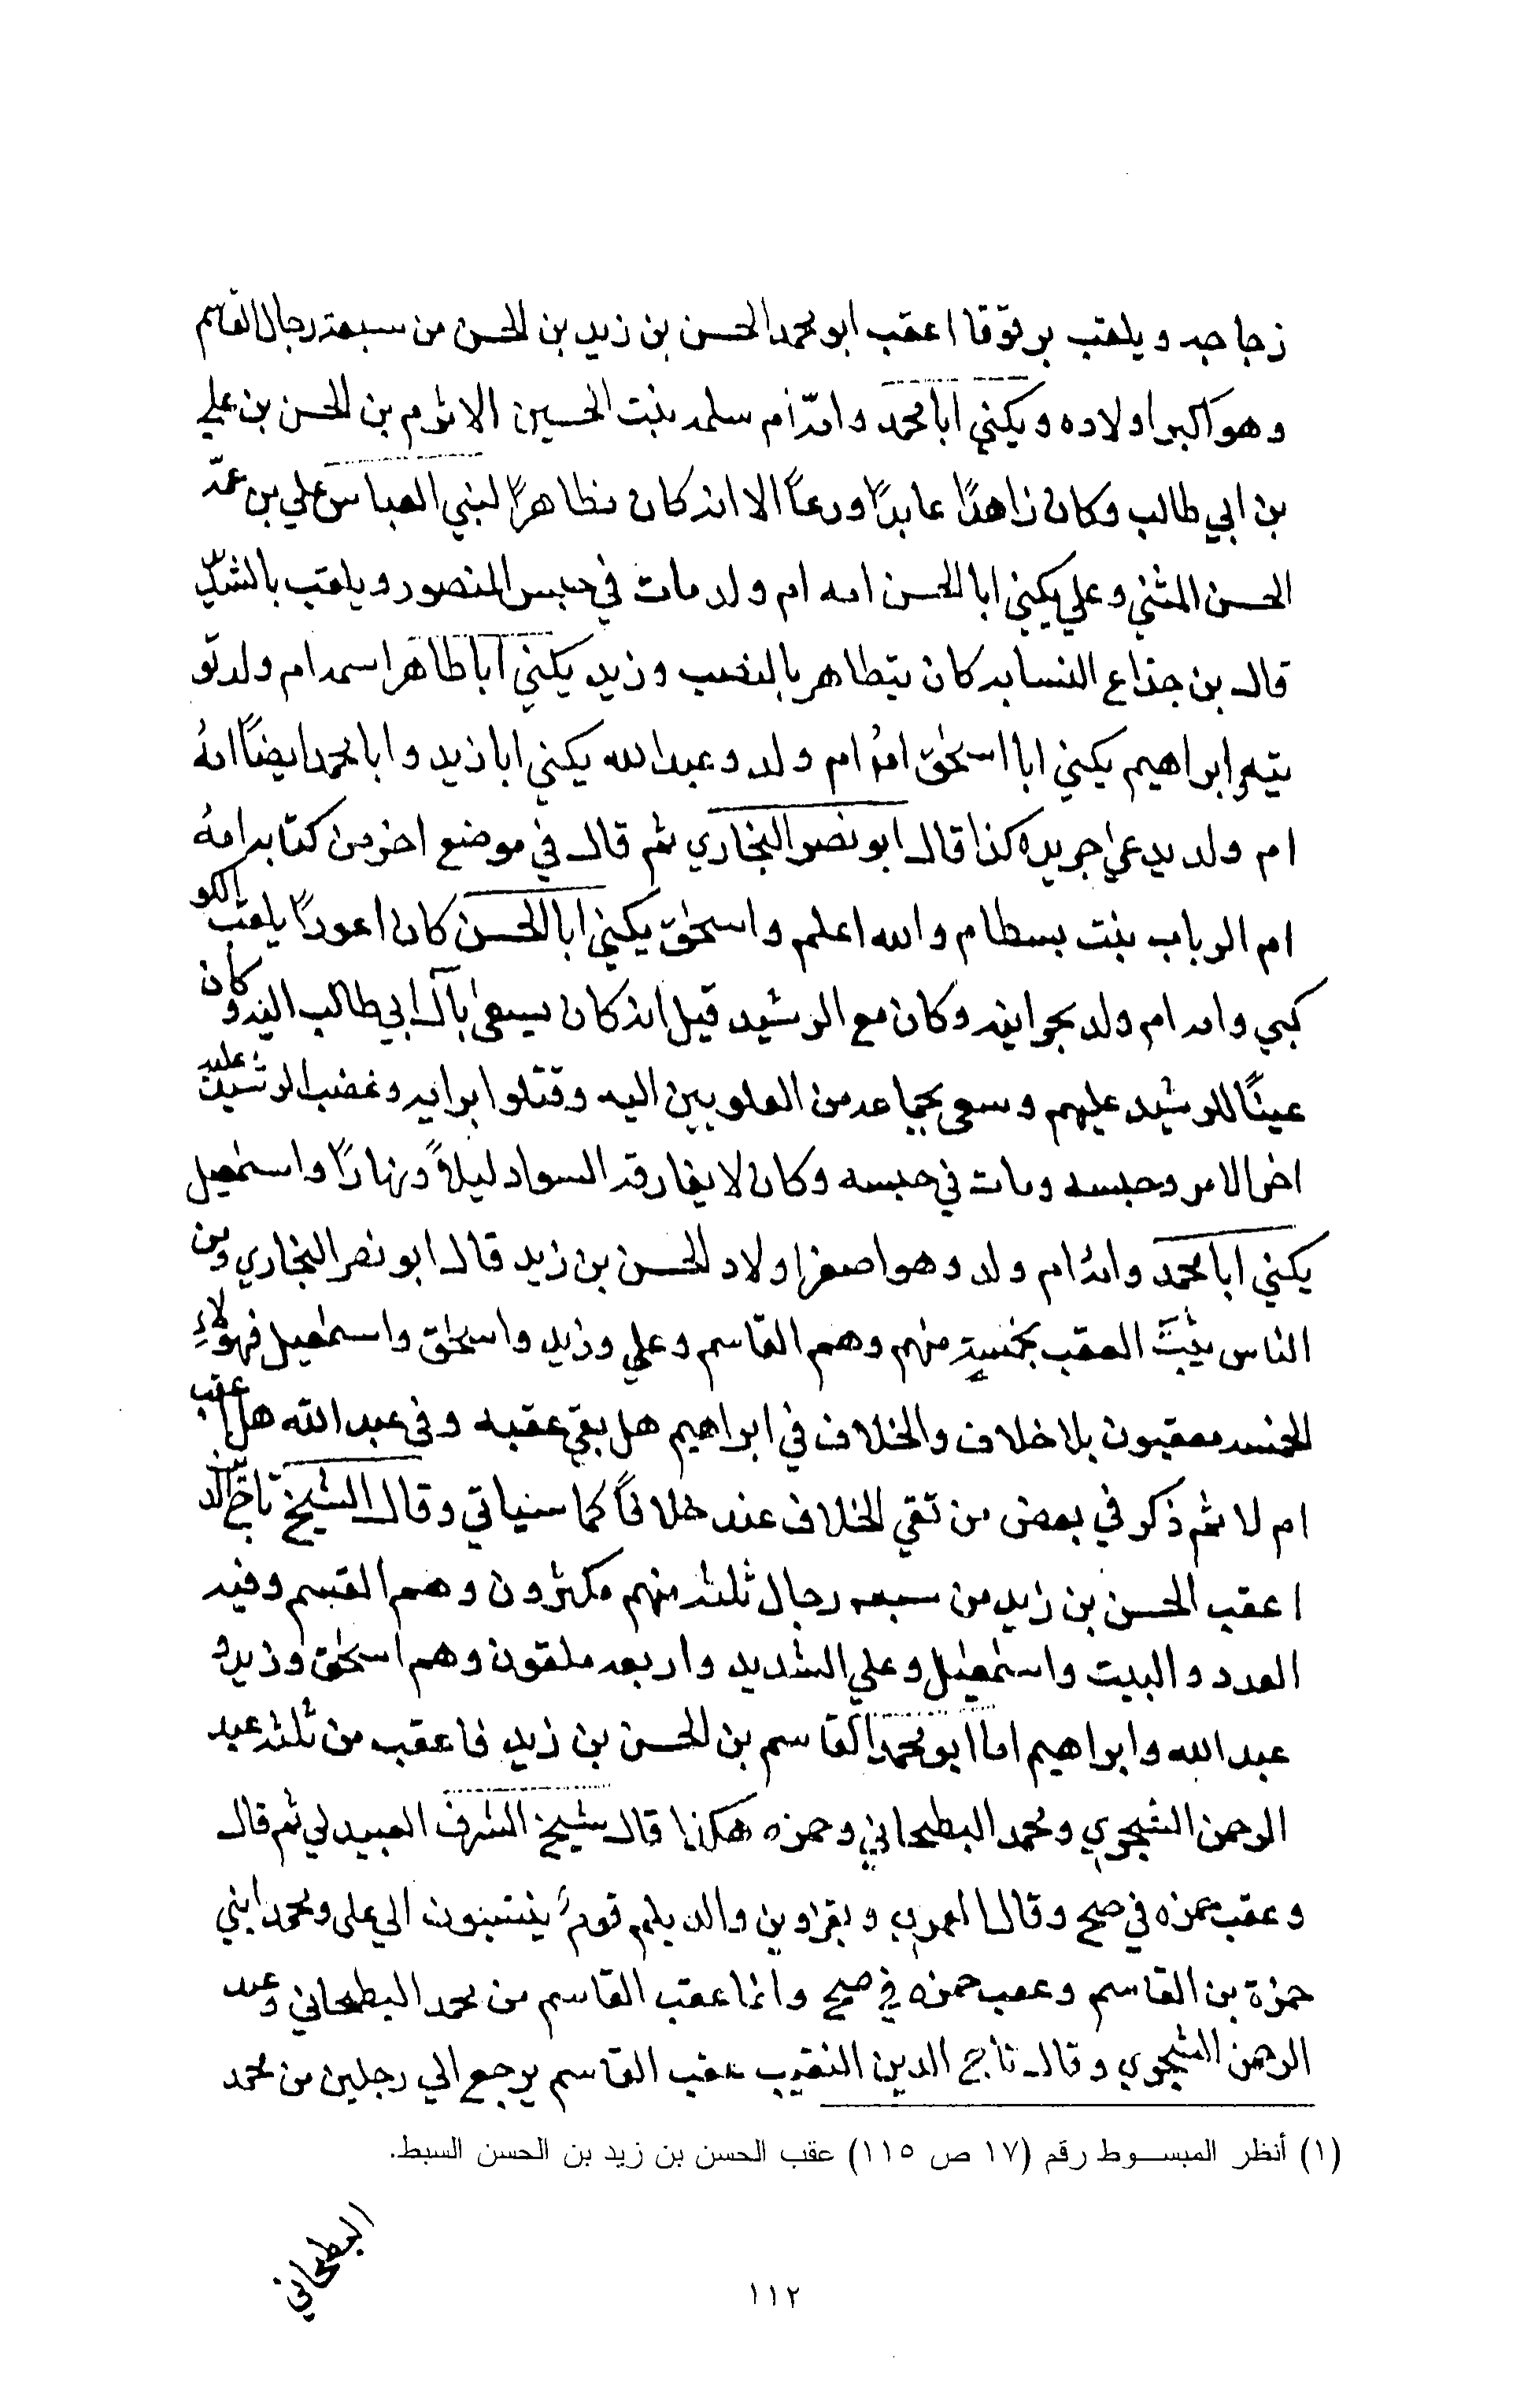 زجاجه ويلقب برقوقا اعقب ابو محمد الحسن بن زيد بن الحسن من سبعة رجال القاسم
وهو اكبر اولاده ويكني ابا محمد وامّه ام سلمه بنت الحسين الاثرم بن الحسن بن علي
بن ابي طالب وكان زاهدًا عابدًا ورعاً الا انه كان مظاهرًا لبني العباس علي بن عمّه
الحسن المثني وعلي يكني ابا الحسن امه ام ولد مات في حبس المنصور ويلقب بالشديد
قال بن خداع النسابه كان يتظاهر بالنصب وزيد يكني ابا طاهر اسمه ام ولد نو
بيه وابراهيم يكني ابا اسحٰق امهُ ام ولد وعبد الله يكني ابا زيد وابا محمد ايضاً امهُ
ام ولد يدعي جريده كذا قال ابو نصر البخاري ثم قال في موضع اخر من كتابه امهُ
ام الرباب بنت بسطام والله اعلم واسحٰق يكني ابا الحسن كان اعورًا يلقب الكو
كبي وامه ام ولد بحرانيه وكان مع الرشيد قيل انه كان يسعى بآل ابي طالب اليه وكان
عيناً للرشيد عليهم وسعى بجماعه من العلويين اليه وقتلوا برايه وغضب الرشيد عليه
اخر الامر وحبسه ومات في حبسه وكان لا يفارقه السواد ليلاً ونهارًا واسمٰعيل
يكني ابا محمد وامهُ ام ولد وهو اصغر اولاد الحسن بن زيد قال ابو نصر البخاري ومن
الناس يثبت العقب بخمسةٍ منهم وهم القاسم وعلي وزيد واسحٰق واسمٰعيل فهؤلاءِ
الخمسه معقبون بلا خلاف والخلاف في ابراهيم هل بقي عقبه وفي عبد الله هل اعقب
ام لا ثم ذكر في بعض من نفي الخلاف عنه خلافاً كما سياتي وقال الشيخ تاج الدين
اعقب الحسن بن زيد من سبعه رجال ثلثه منهم مكثرون وهم القسم وفيه
العدد والبيت واسمٰعيل وعلي الشديد واربعه مقلون وهم اسحٰق وزيد و
عبد الله وابراهيم اما ابو محمد القاسم بن الحسن بن زيد فاعقب من ثلثه عبد
الرحمن الشجري ومحمد البطحاني وحمزه هكذا قال شيخ الشرف العبيدلي ثم قال
وعقب حمزه في صح وقال العمري وبقزوين والديلم قومٌ ينتسبون الي على ومحمد ابني
حمزة بن القاسم وعقب حمزه في صح وانما عقب القاسم من محمد البطحاني وعبد
الرحمن الشجري وقال تاج الدين النقيب عقب القاسم يرجع الي رجلين من محمد
(١) أنظر المبسوط رقم (١٧ ص ١١٥) عقب الحسن بن زيد بن الحسن السبط.
البطحاني
١١٢